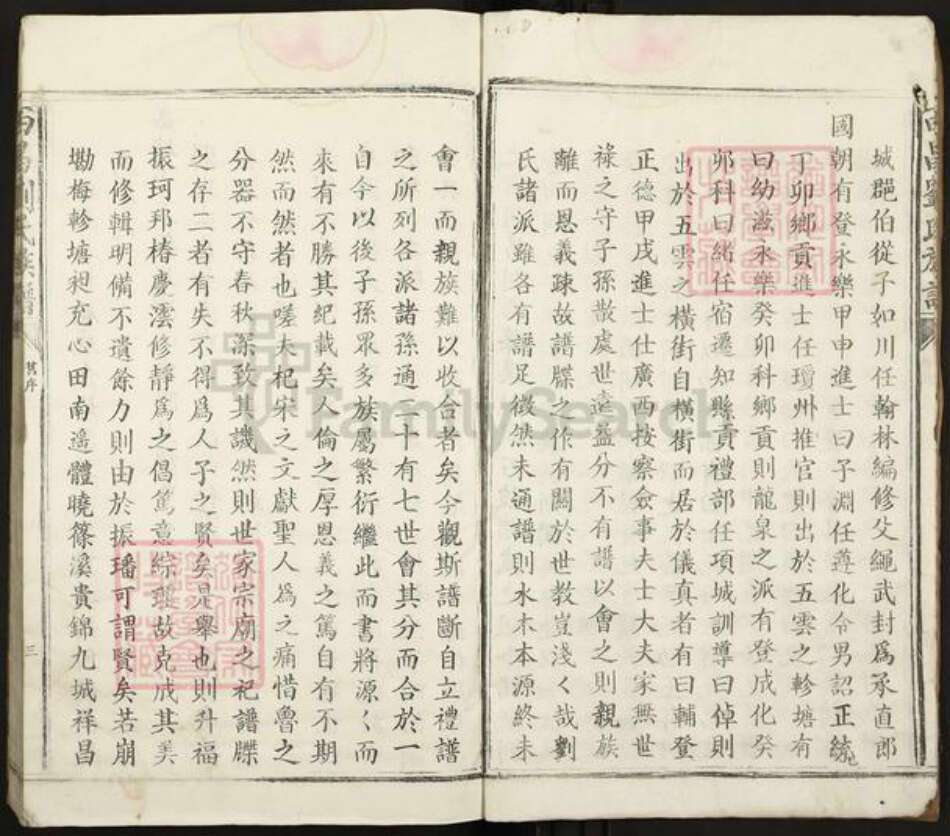 城郡伯從子如川任翰林編修父繩武封爲承直郎
國朝有登永樂甲申進士曰子淵任遵化令男詔正統
丁卯鄉貢進士任瓊州推官則出於五雲之軫塘有
曰幼滋永樂癸卯科鄉貢則龍泉之派有登成化癸
夘科曰緒任宿遷知縣貢禮部任項城訓導曰倬則
出於五雲之橫街自橫街而居於儀真者有曰輔登
正德甲戌進士仕廣西按察僉事夫士大夫家無世
祿之守子孫散處世遠益分不有譜以會之則親族
離而恩義疎故譜牒之作有關於世教豈淺く哉劉
氏諸派雖各有譜足徵然未通譜則水木本源終未
會一而親族難以收合者矣今觀斯譜斷自立禮譜
之所列各派諸孫通二十有七世會其分而合於一
自今以後子孫眾多族屬繁衍繼此而書將源く而
來有不勝其紀載矣人倫之厚恩義之篤自有不期
然而然者也嗟夫杞宋之文獻聖人爲之痛惜魯之
分器不守春秋深致其譏然則世家宗廟之祀譜牒
之存二者有失不得爲人子之賢矣是舉也則升福
振珂邦椿慶澐修靜爲之倡篤意綜理故克成其美
而修輯明備不遺餘力則由於振璠可謂賢矣若崩
墈梅軫塘昶充心田南遥體曉篠溪貴錦九城祥昌
劉氏族譜
舊序
三
FamilySearch